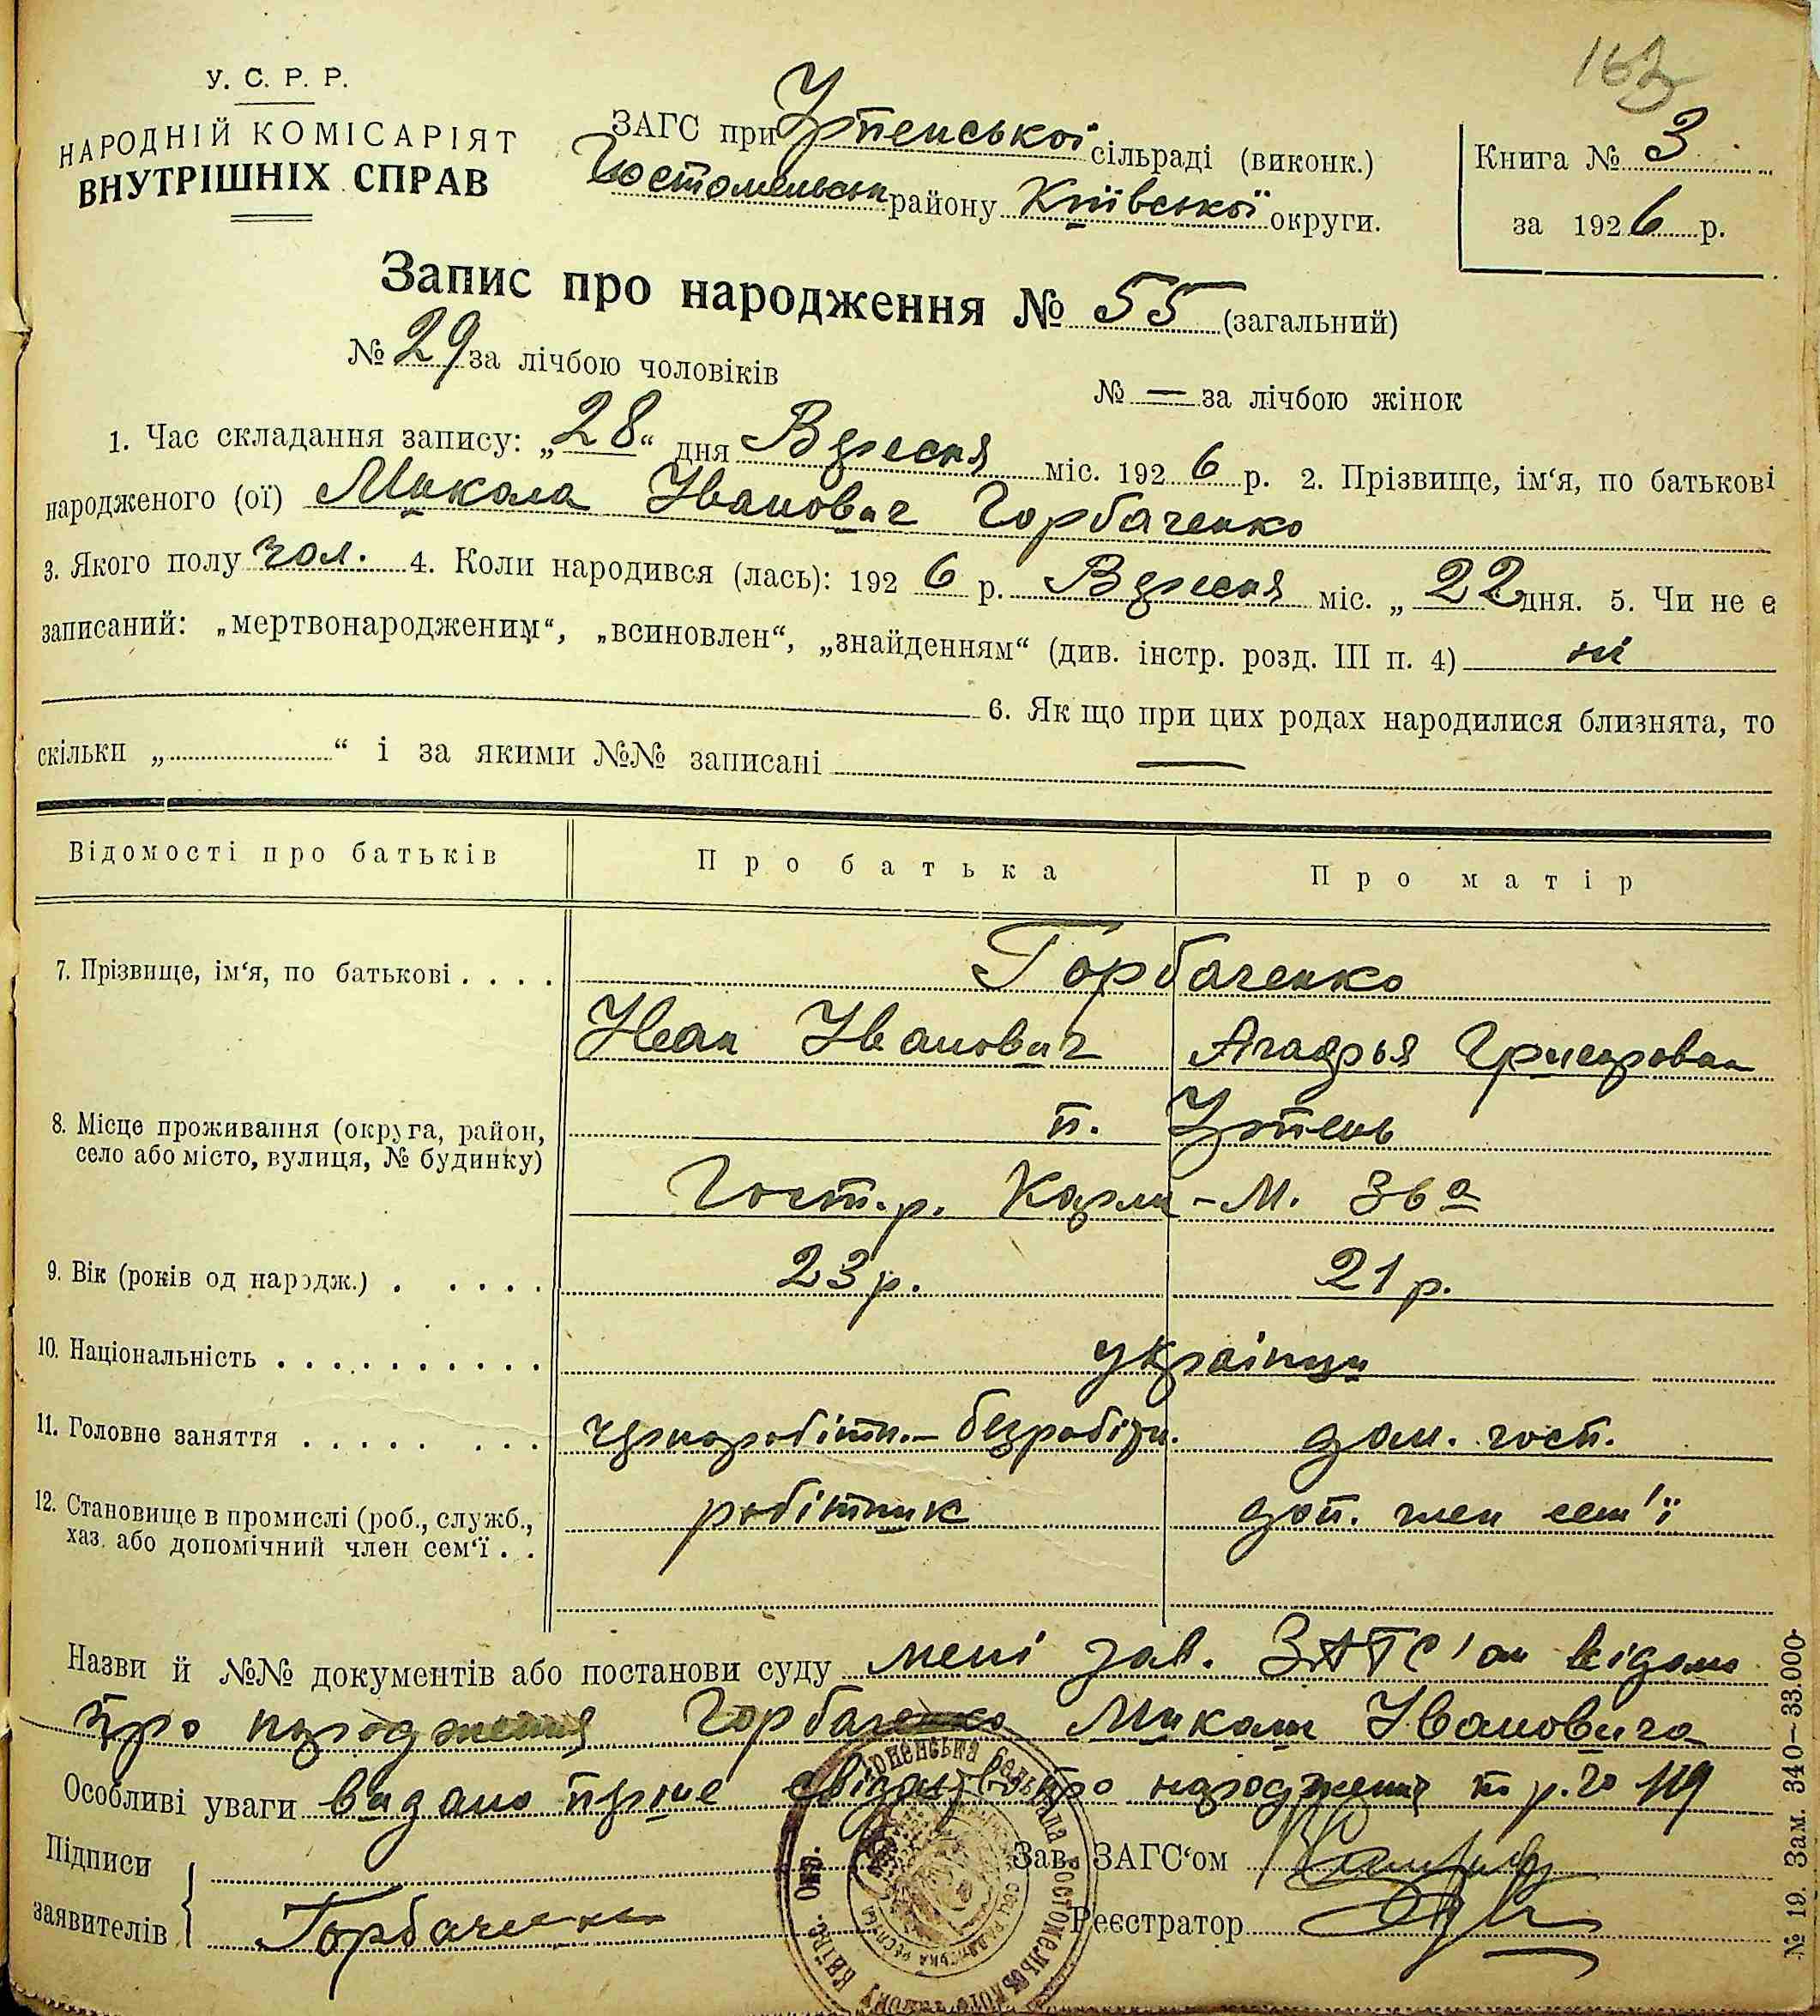 163
У. С. Р. Р.
НАРОДНІЙ КОМІСАРІЯТ
ВНУТРІШНІХ СПРАВ
ЗАГС при Ірпенської сільраді (виконк.)
Гостомельськ району Київської округи.
Книга № 3
за 1926 р.
Запис про народження № 55 (загальний)
№ 29 за лічбою чоловіків
№ — за лічбою жінок
1. Час складання запису: „28“ дня Вересня міс. 1926 р. 2. Прізвище, ім‘я, по батькові
народженого (ої) Микола Іванович Горбаченко
3. Якого полу чол. 4. Коли народився (лась): 1926 р. Вересня міс. „22 дня. 5. Чи не є
записаний: „мертвонародженим“, „всиновлен“, „знайденням“ (див. інстр. розд. III п. 4) ні
6. Як що при цих родах народилися близнята, то
скільки „ “ і за якими №№ записані —
Відомості про батьків Про батька Про матір
7. Прізвище, ім‘я, по батькові . . . . Горбаченко
Іван Іванович Агафья Григоровна
8. Місце проживання (округа, район, п. Ірпень
село або місто, вулиця, № будинку)
Гост. р. Карла-М. 36а
9. Вік (років од народж.) . . . . . 23 р. 21 р.
10. Національність . . . . . . . . . . українци
11. Головне заняття . . . . . . . . чорноробітн.– безробітн. дом. госп.
12. Становище в промислі (роб., служб., робітник доп. член сем'ї
хаз. або допомічний член сем‘ї . .
Назви й №№ документів або постанови суду мені зав. ЗАГС'ом відомо
про народження Горбаченко Миколи Івановича
Особливі уваги видано перше свідоцтво про народження по р. за 119
Підписи
заявителів
Горбаченко
Зав. ЗАГС‘ом
Реєстратор
№ 19. Зам. 340–33.000